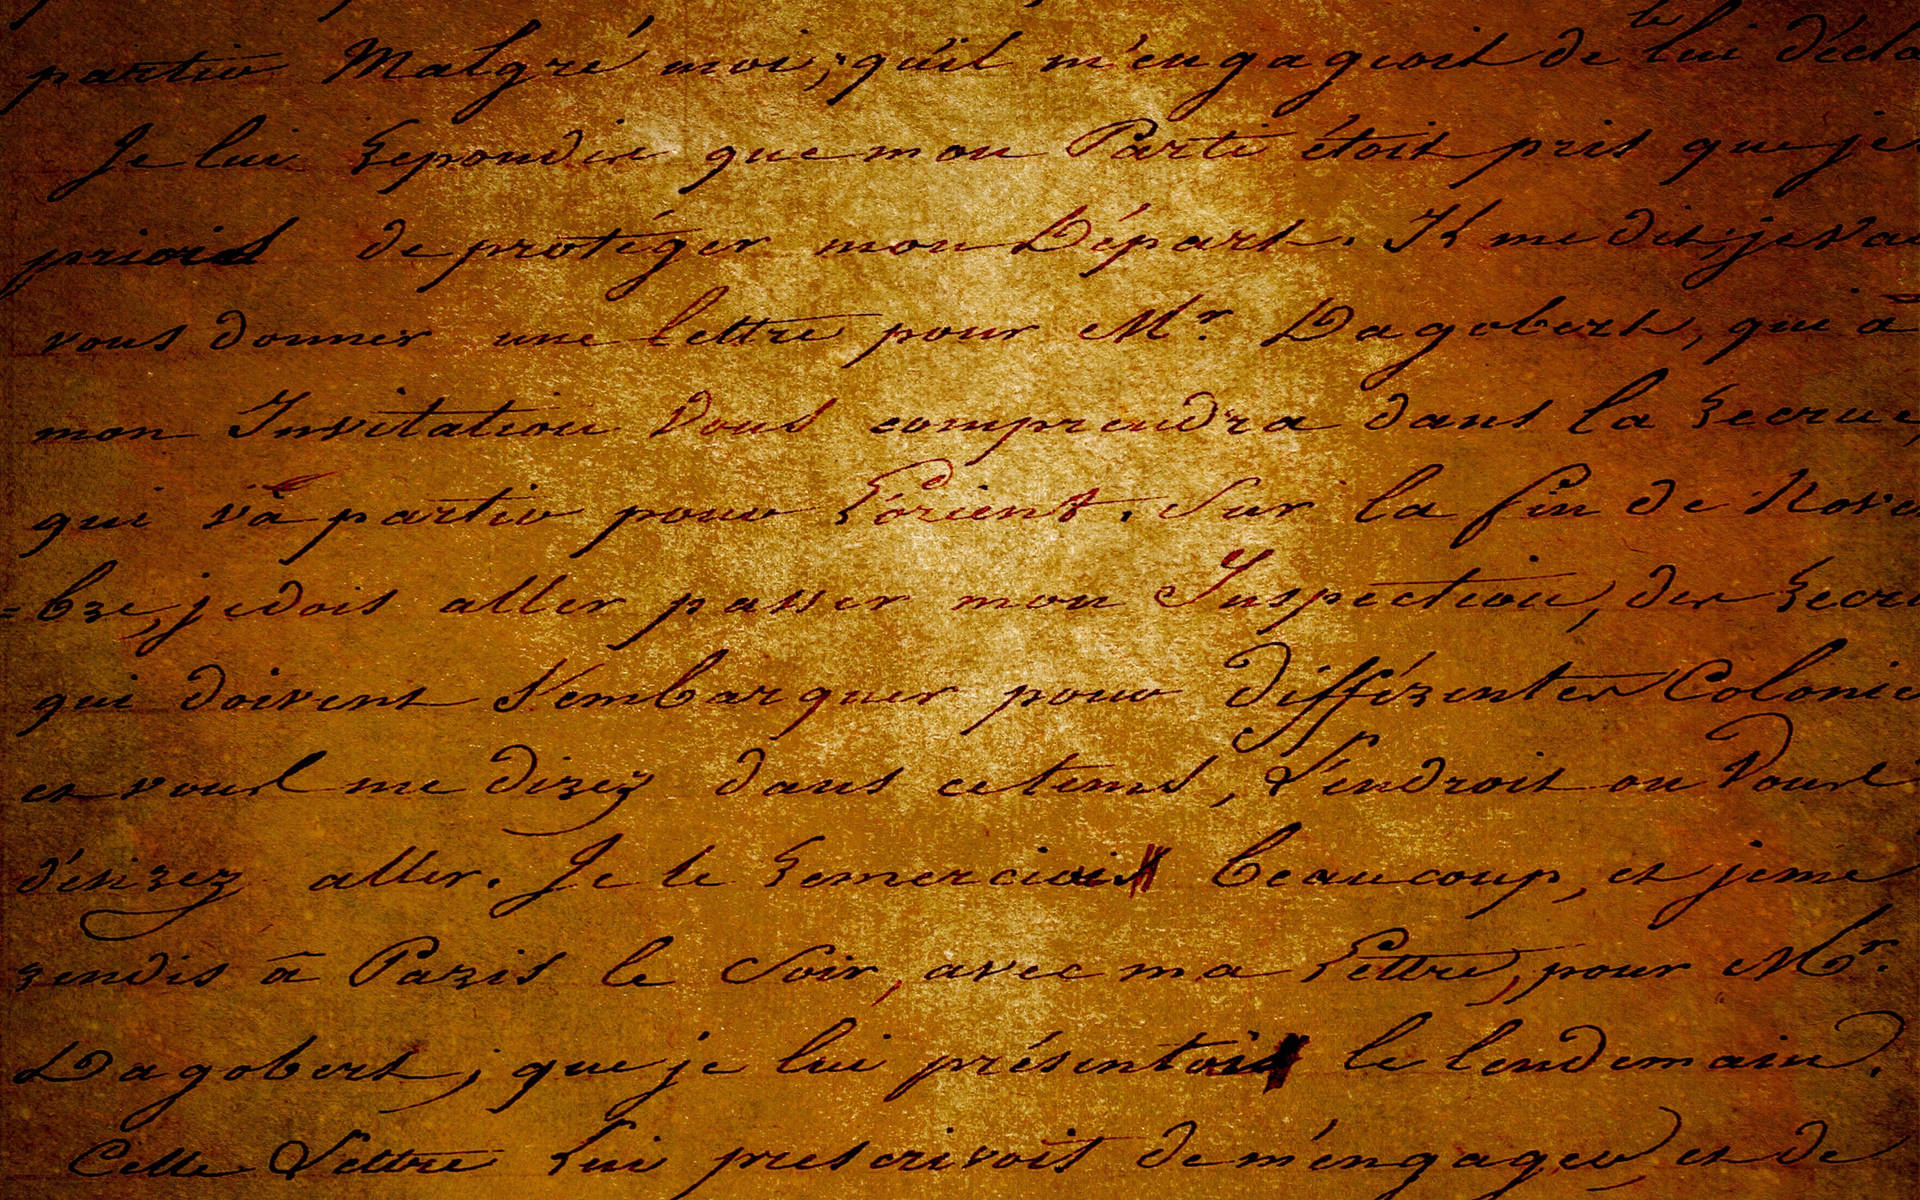 partir Malgré moi; qu'il m'engageoit de le lui décla
Je lui Repondis que mon Parti étoit pris que je
priois de protéger mon Départ. Il me dit; je va
vous donner une Lettre pour Mr. Dagobert, qui à
mon Invitation Vous comprendra dans la Recrue,
qui và partir pour L'orient. Sur la fin de Nove
=bre, je dois aller passer mon Inspection, des Recru
qui doivent s'embarquer pour différentes Colonie
et vous me direz dans ce tems, L'endroit ou Vous
désirez aller. Je le Remerciois beaucoup, et je me
rendis à Paris le Soir, avec ma Lettre, pour Mr.
Dagobert; que je lui présentois le lendemain.
Cette Lettre Lui prescrivoit de m'engager et de